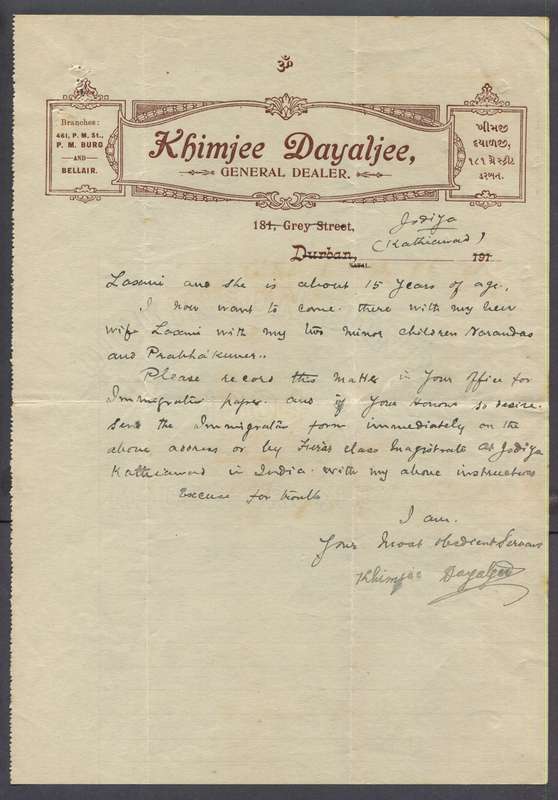 ॐ
Branches:
461, P. M. St.,
P. M. BURG
AND
BELLAIR.
Khimjee Dayaljee,
GENERAL DEALER.
ખીમજી
દયાળજી,
૧૮૧ ગ્રે સ્ટ્રીટ
ડરબન.
181, Grey Street,
Jodiya
(Kathiawad)
Durban, 191
NATAL.
Laxmi and she is about 15 years of age,
I now want to come there with my new
wife Laxmi with my two minor children Narandas
and Prabhákuver..
Please record this matter in your office for
Immigration paper. and if your Honour so desire.
Send the Immigration form immediately on the
above address or by First class Magistrate at Jodiya
Kathiawad in India. with my above instructions
Excuse for trouble
I am.
Your Most obedient Servant
Khimjee Dayaljee